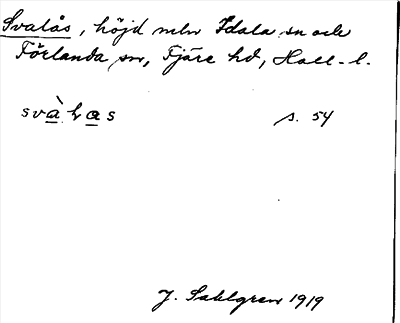 Svalås, höjd mlm Idala sn och
Förlanda sn, Fjäre hd, Hall. l.
svàlas s. 54
J. Sahlgren 1919